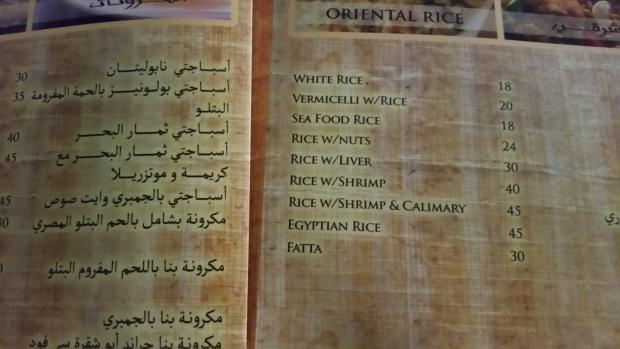 أسباجتي نابوليتان 30
أسباجتي بولونيـز بالحمة المفرومة 35
البتلو
أسباجتي ثمـار البحـر 40
أسباجتي ثمـار البحـر مع 45
كريمـة و موتزريـلا
أسباجتي بالجمبري وايت صوص 45
مكرونة بشامل بالحم البتلو المصري
مكرونة بنا باللحم المفروم البتلو
مكرونة بنا بالجمبري
مكرونة بنا جراند أبو شقرة سي فود
ORIENTAL RICE
WHITE RICE 18
VERMICELLI W/RICE 20
SEA FOOD RICE 18
RICE W/NUTS 24
RICE W/LIVER 30
RICE W/SHRIMP 40
RICE W/SHRIMP & CALIMARY 45
EGYPTIAN RICE 45
FATTA 30